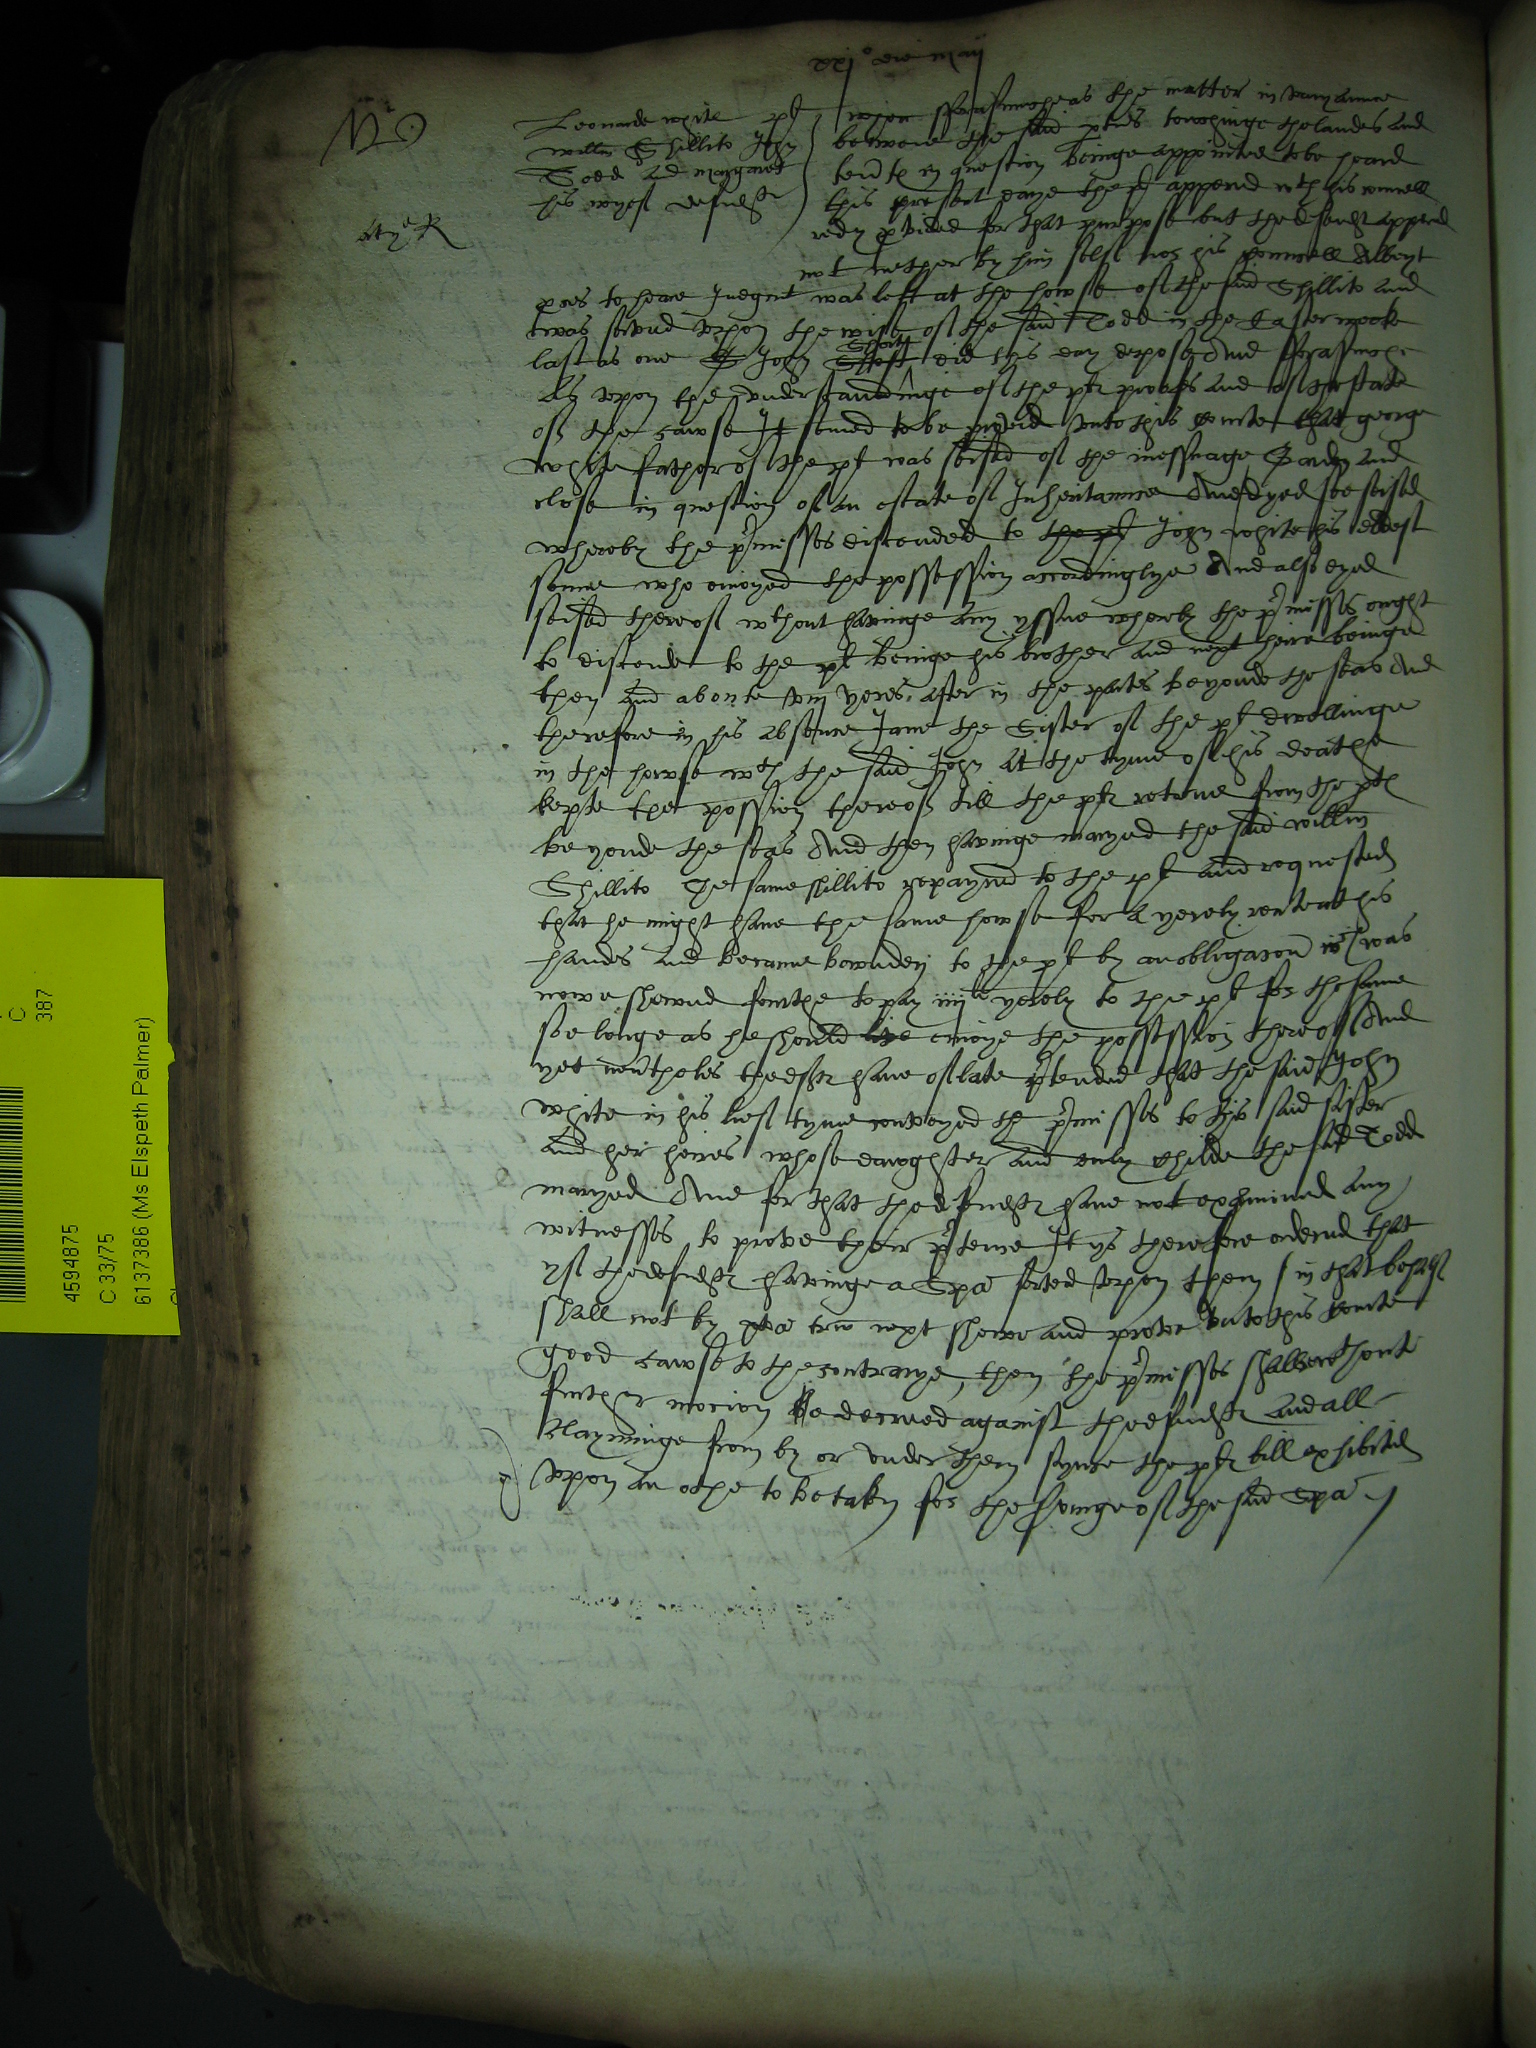 xxj° die Maij
Leonarde white pl
willm Shillito John
Todd and margaret
his wyef defendtes
Forasmoche as the matter in varyaunce
betwene the said pties towchinge the landes and
tentes in question beinge appointed to be heard
this present daye the pl appered wth his counsell
redy pvided for that purpose but the defendtes appered
not nether by him self nor his counsell Albeyt
proces to heare Judgmt was left at the howse of the said Shillito and
was served vpon the wife of the said Todd in the Easter weeke
last as one John Short did this day depose And forasmoche
as vpon the vnderstandinge of the ples proofes and of the state
of the cawse It semed to be proved vnto this courte that george
white father of the pl was seised of the messuage Garden and
close in question of an estate of Inheritaunce And dyed soe seised
whereby the pmisses discended to the pl John white his eldest
sonne who enioyed the possession accordinglye And also dyed
seised thereof wthout havinge any yssue whereby the pmisses ought
to discende to the pl beinge his brother and next heire beinge
then and aboute viij yeres after in the partes beyonde the seas And
therefore in his absence Jane the Sister of the pl dwellinge
in the howse wth the said John at the tyme of his deathe
kepte the possession thereof till the ples retorne from the ptes
beyonde the seas And then havinge maryed the said willm
Shillito The same shillito repayred to the pl and requested
that he might have the same howse for a yerely rente at his
handes and became bownden to the pl by an obligacon wch was
nowe shewed fourthe to pay iiijli yerely to the pl for the same
soe longe as he should live enioye the possession thereof And
yet nevertheles the deftes have of late ptended that the said John
white in his lief tyme conveyed the pmisses to his said sister
and her heires whose dawghter and only childe the said Todd
maryed And for that the defendtes have not examined any
witnesses to prove their ptence It ys therefore ordered that
yf the defendtes havinge a Spa served vpon them in that behaff
shall not by the next shewe and prove vnto this courte
good cawse to the contrarye, then the pmisses shalbe wthout
further mocion be decreed against the defendtes and all
clayminge from by or vnder them synce the ples bill exhibited
vpon an othe to be taken for the servinge of the said Spa
4594875
C 33/75
61377386 (Ms Elspeth Palmer)
C
387